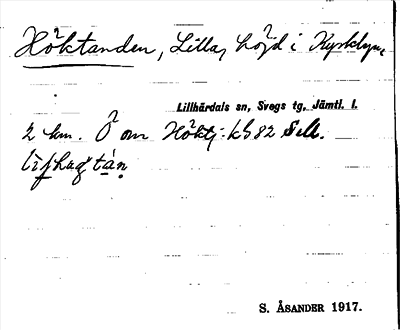 Höktanden, Lilla, höjd i Kyrkbyn,
Lillhärdals sn, Svegs tg, Jämtl. l.
2 km. Ö om Höktj: kb 82 SeM.
S. ÅSANDER 1917.